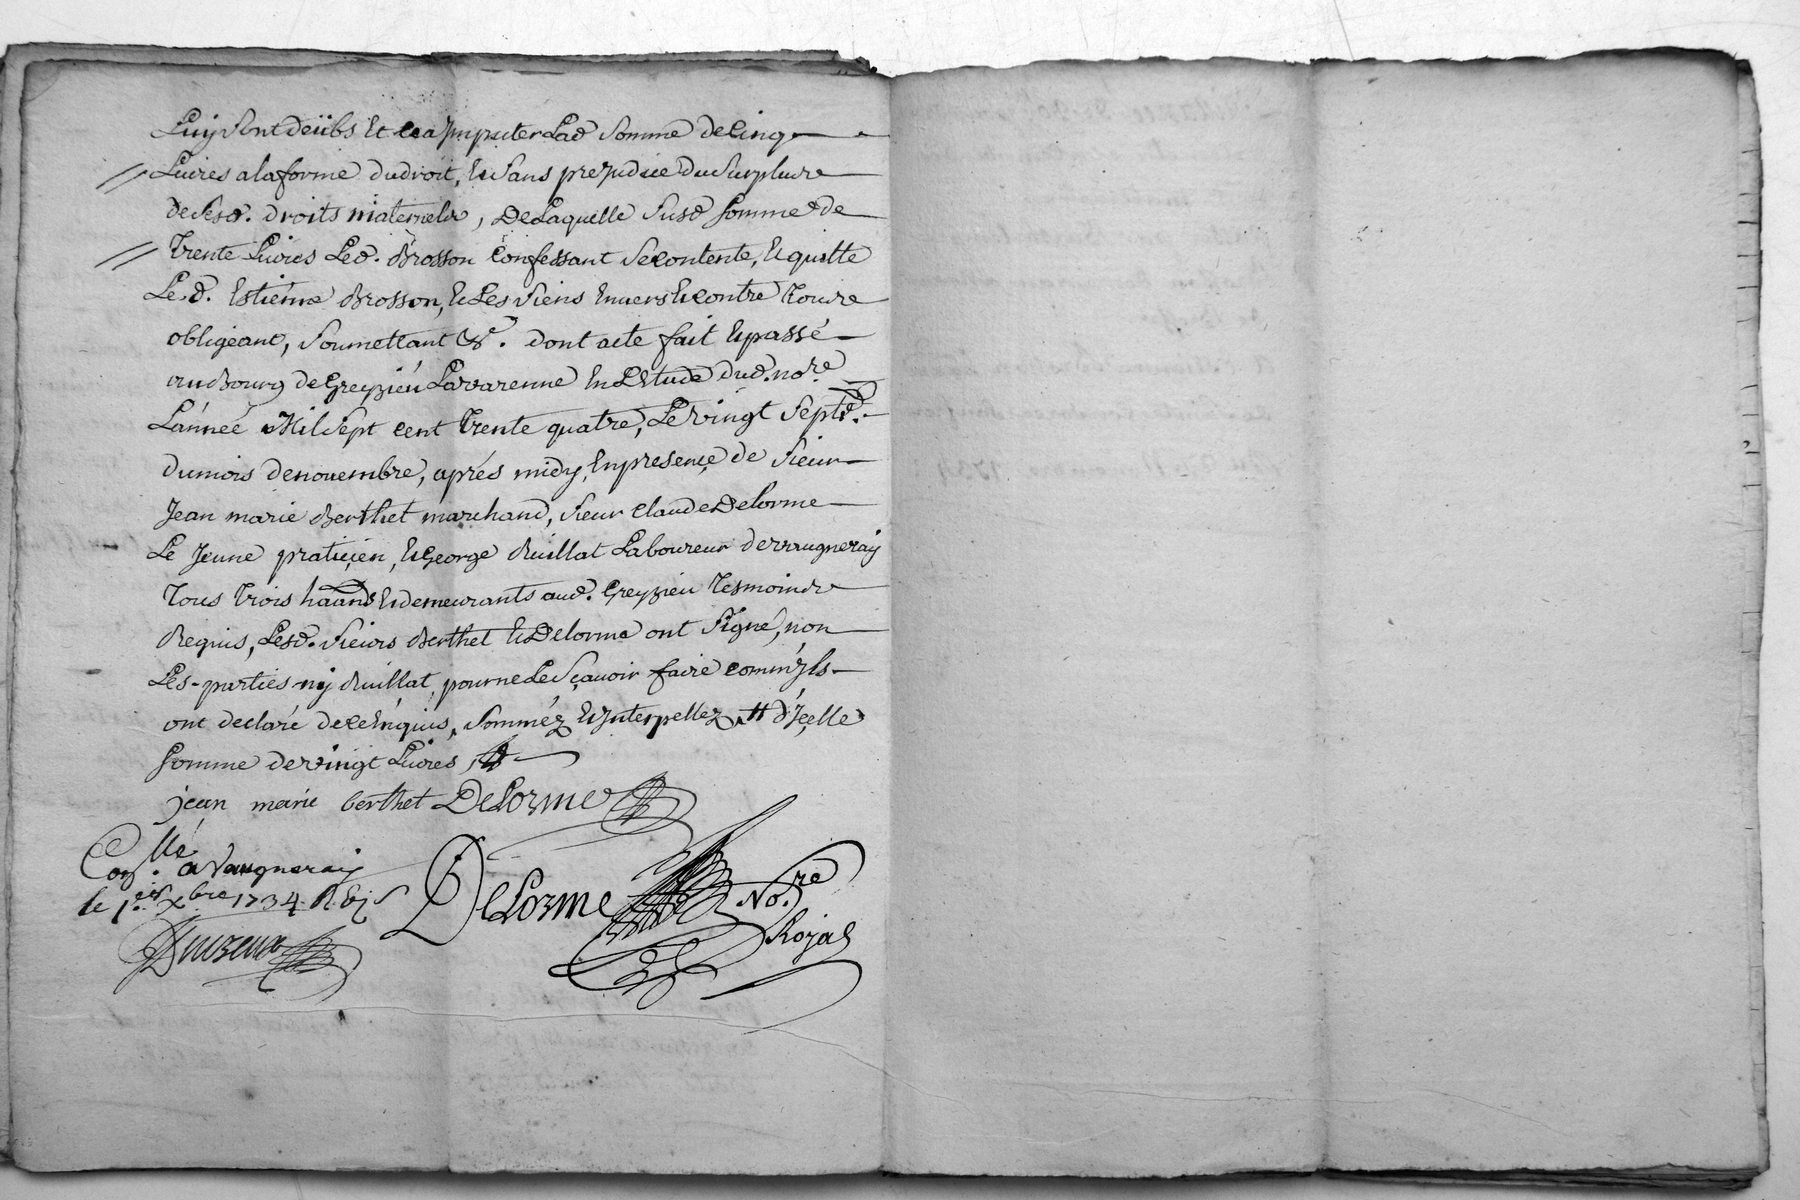 Luy sont deübs et a Jmputer Lad somme de Cinq
Livres a la forme du droit, et sans prejudice du surplus
de sesd. droits maternels, de Laquelle susd somme de
trente Livres Led. Brosson Confessant se contente, et quitte
Led. Estienne Brosson, et Les siens envers et contre tous
obligeant, soumettant &c. dont acte fait et passé
au Bourg de Greyzieu Lavarenne en L'Etude dud. nore
L'année Mil sept cent trente quatre, Le vingt sept.
du mois de novembre, aprés midy, en presençe de sieur
Jean marie Berthet marchand, sieur Claude Delorme
Le Jeune pratiçien, et George Ruillat Laboureur de vaugneray
tous trois et demeurants aud. Greyzieu tesmoins
Requis, Lesd. sieurs Berthet et Delorme ont signé, non
Les parties ny Ruillat, pour ne Le sçavoir faire comm'ils
ont declaré de ce enquis, sommez et Interpellez # d'Jçelle
somme de vingt Livres #
jean marie berthet Delorme
Conllé a Vaugneray
le 1er Xbre 1734 R
Delorme No.re
Royal